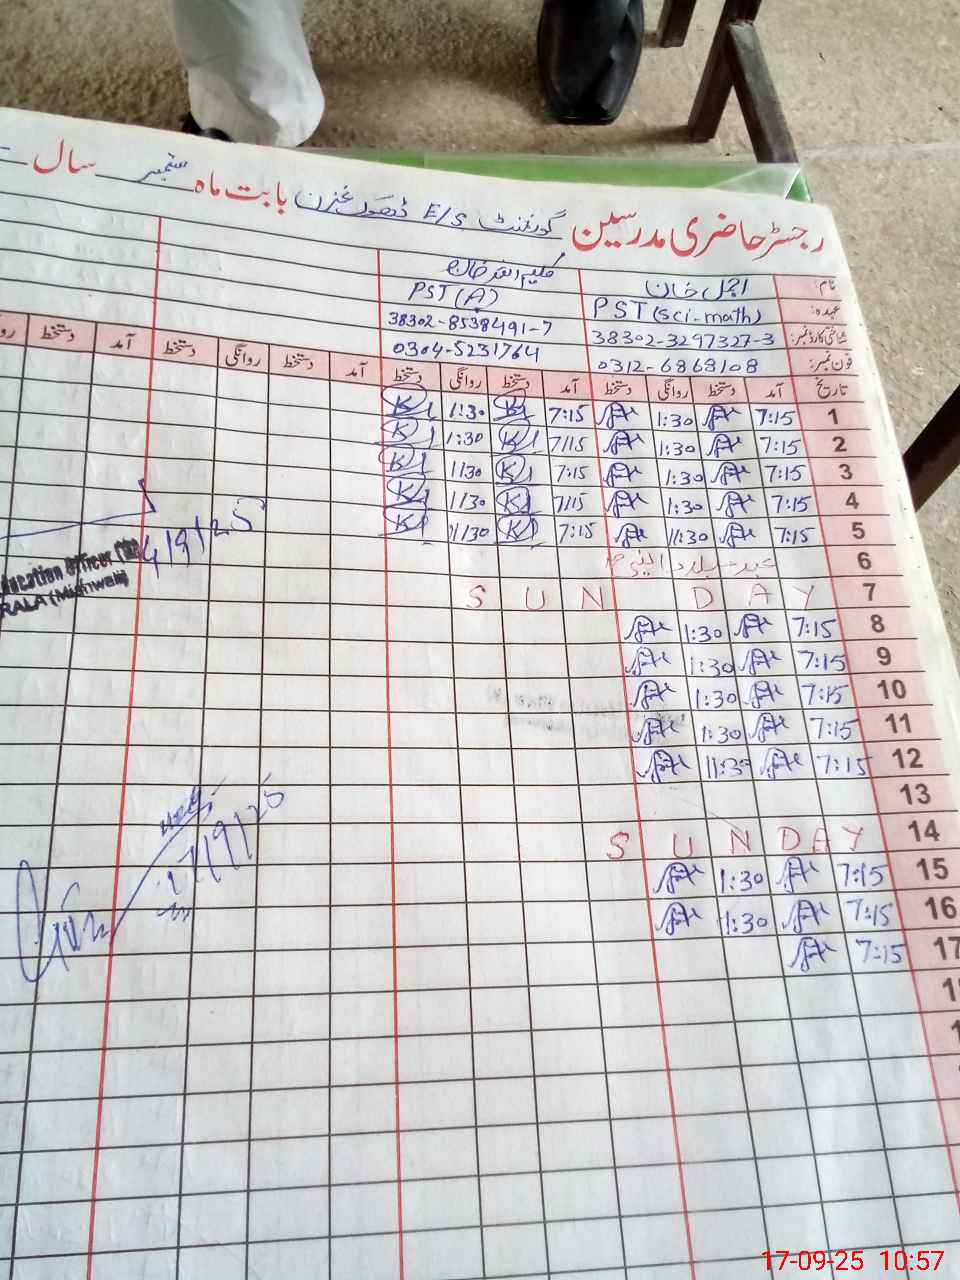 رجسٹر حاضری مدرسین گورنمنٹ E/S ڈھوک غزن بابت ماہ ستمبر سال
نام: اجمل خان حکیم
عہدہ: PST (sci-math) PST (A)
شناختی کارڈ نمبر: 38302-3297327-3 38302-8538491-7
فون نمبر: 0312-6868108 0304-5231764
تاریخ آمد دستخط روانگی دستخط آمد دستخط روانگی دستخط آمد دستخط روانگی دستخط آمد دستخط
1 7:15 1:30 7:15 1:30
2 7:15 1:30 7:15 1:30
3 7:15 1:30 7:15 1:30
4 7:15 1:30 7:15 1:30
5 7:15 11:30 7:15 11:30
6 عید
7 SUNDAY
8 7:15 1:30
9 7:15 1:30
10 7:15 1:30
11 7:15 1:30
12 7:15 11:30
13
14 SUNDAY
15 7:15 1:30
16 7:15 1:30
17 7:15
4/9/25
Education Officer
RALA (Mianwali)
17/9/25
17-09-25 10:57